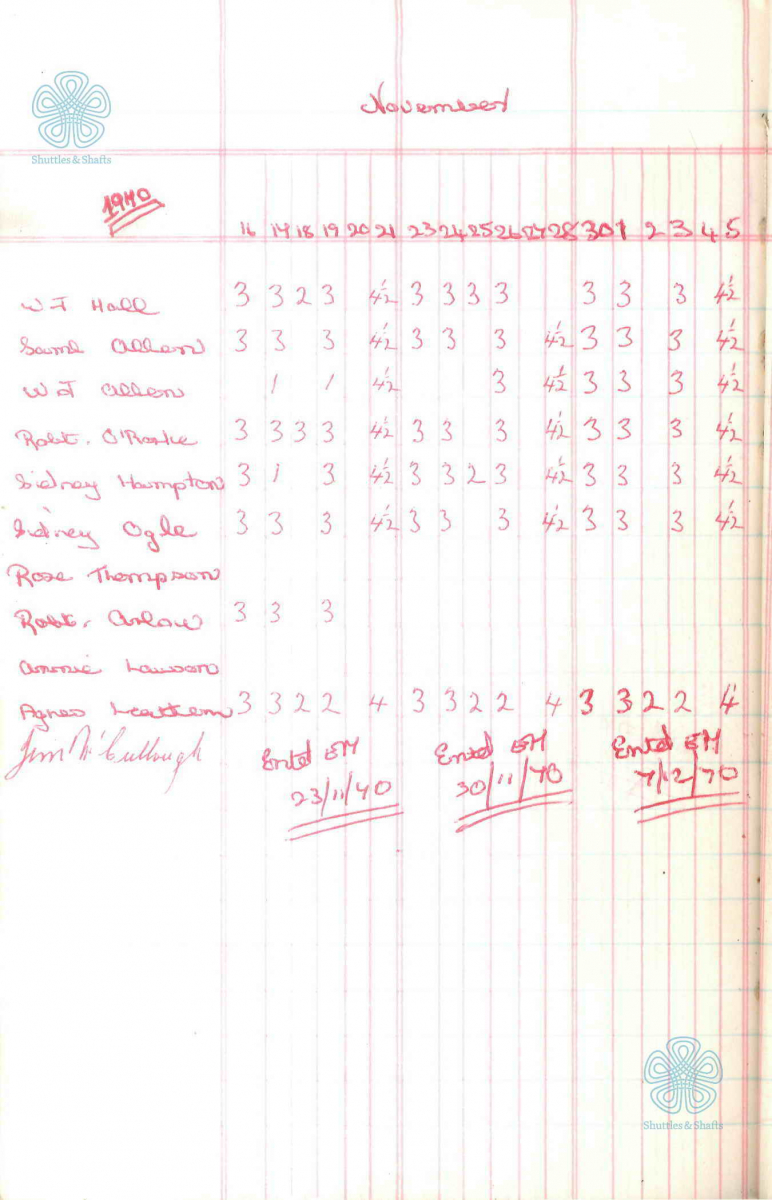 Shuttles & Shafts
November
1970
16 17 18 19 20 21 23 24 25 26 27 28 30 1 2 3 4 5
W J Hall 3 3 2 3 4½ 3 3 3 3 3 3 3 4½
Saml Allen 3 3 3 4½ 3 3 3 4½ 3 3 3 4½
W J Allen 1 1 4½ 3 4½ 3 3 3 4½
Robt. O'Rorke 3 3 3 3 4½ 3 3 3 4½ 3 3 3 4½
Sidney Hampton 3 1 3 4½ 3 3 2 3 4½ 3 3 3 4½
Sidney Ogle 3 3 3 4½ 3 3 3 4½ 3 3 3 4½
Rose Thompson
Robt. Arlow 3 3 3
Annie Lawson
Agnes Leathem 3 3 2 2 4 3 3 2 2 4 3 3 2 2 4
Jim McCullough Entd EM Entd EM Entd EM
23/11/70 30/11/70 7/12/70
Shuttles & Shafts